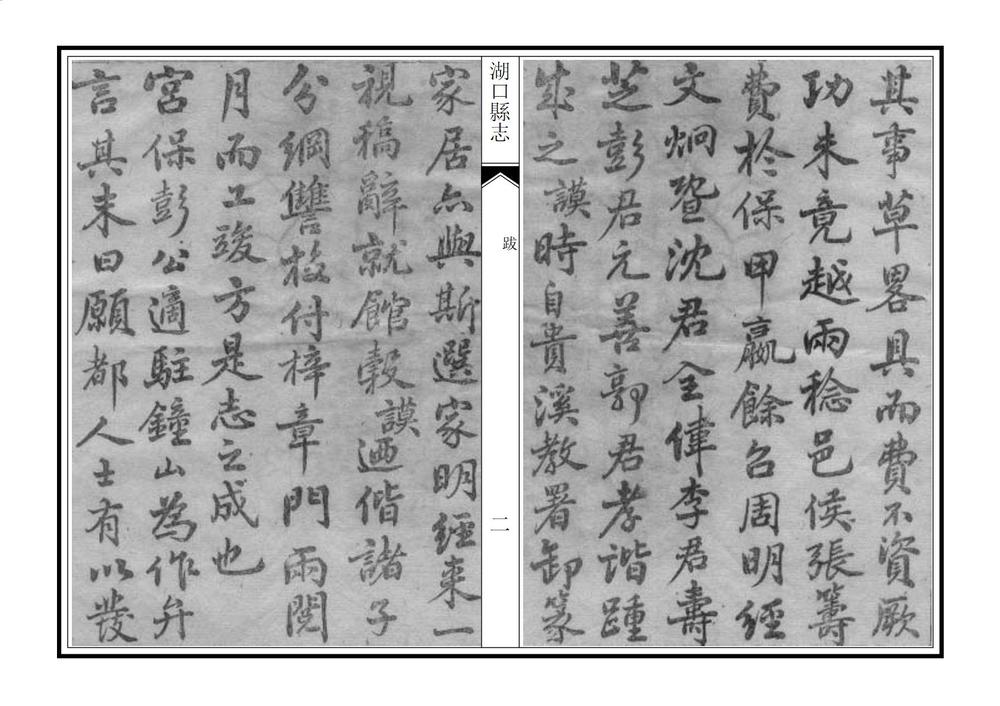 其事草畧具而費不資厥
功未竟越兩稔邑侯張籌
費於保甲嬴餘召周明經
文炯暨沈君全偉李君壽
芝彭君元善郭君孝諧踵
成之謨時自貴溪教署卸篆
湖口縣志
跋
二
家居亦與斯選家明經來一
視稿辭就館穀謨迺偕諸子
分綱讐校付梓章門兩閱
月而工竣方是志之成也
宮保彭公適駐鐘山為作弁
言其末曰願都人士有以發